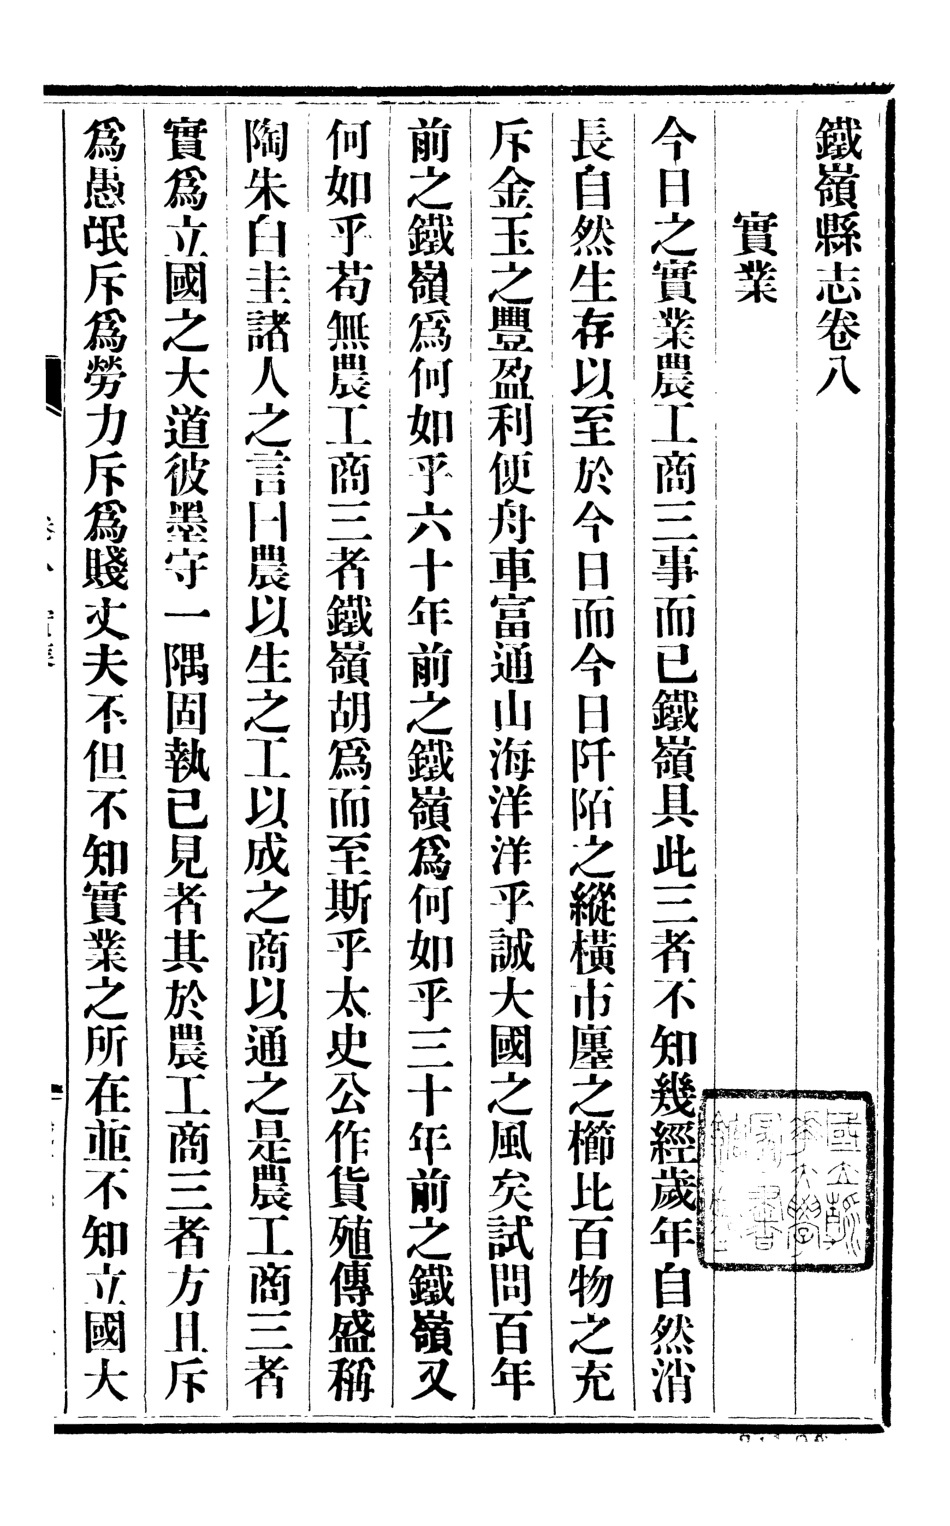 鐵嶺縣志卷八
實業
今日之實業農工商三事而已鐵嶺具此三者不知幾經歲年自然消
長自然生存以至於今日而今日阡陌之縱橫市廛之櫛比百物之充
斥金玉之豐盈利便舟車富通山海洋洋乎誠大國之風矣試問百年
前之鐵嶺爲何如乎六十年前之鐵嶺爲何如乎三十年前之鐵嶺又
何如乎苟無農工商三者鐵嶺胡爲而至斯乎太史公作貨殖傳盛稱
陶朱白圭諸人之言曰農以生之工以成之商以通之是農工商三者
實爲立國之大道彼墨守一隅固執已見者其於農工商三者方且斥
爲愚氓斥爲勞力斥爲賤丈夫不但不知實業之所在並不知立國大